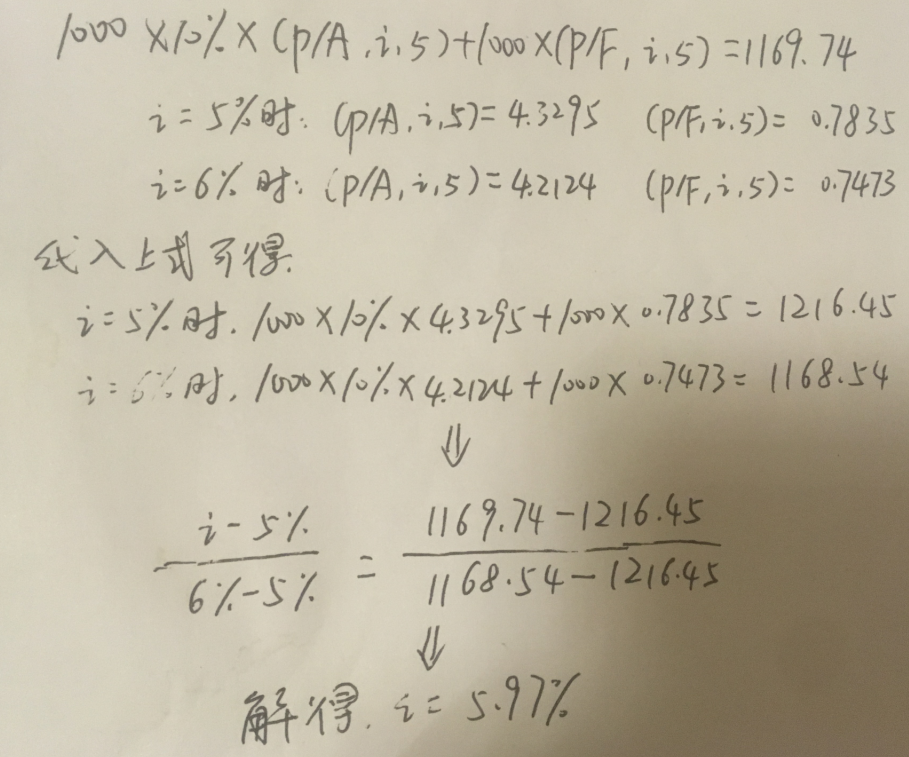 1000×10%×(P/A,i,5)+1000×(P/F,i,5)=1169.74
i=5%时:(P/A,i,5)=4.3295 (P/F,i,5)=0.7835
i=6%时:(P/A,i,5)=4.2124 (P/F,i,5)=0.7473
代入上式可得.
i=5%时.1000×10%×4.3295+1000×0.7835=1216.45
i=6%时,1000×10%×4.2124+1000×0.7473=1168.54
⇓
i-5% 1169.74-1216.45
=
6%-5% 1168.54-1216.45
⇓
解得.i=5.97%